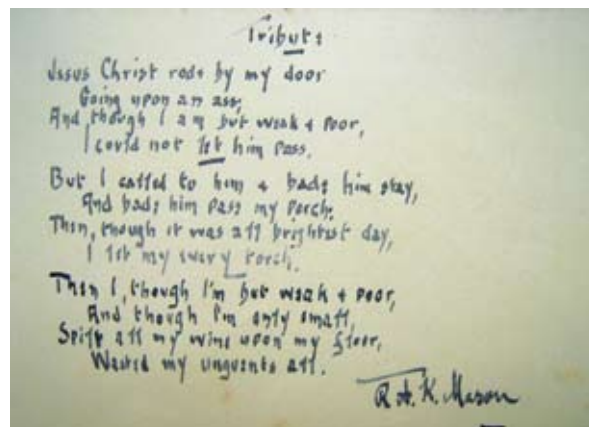 Tribute
Jesus Christ rode by my door
Going upon an ass,
And though I am but weak & poor,
I could not let him pass.
But I called to him & bade him stay,
And bade him pass my porch.
Then, though it was all brightest day,
I lit my every torch.
Then I, though I'm but weak & poor,
And though I'm only small,
Spilt all my wine upon my floor,
Wasted my unguents all.
R.A.K. Mason